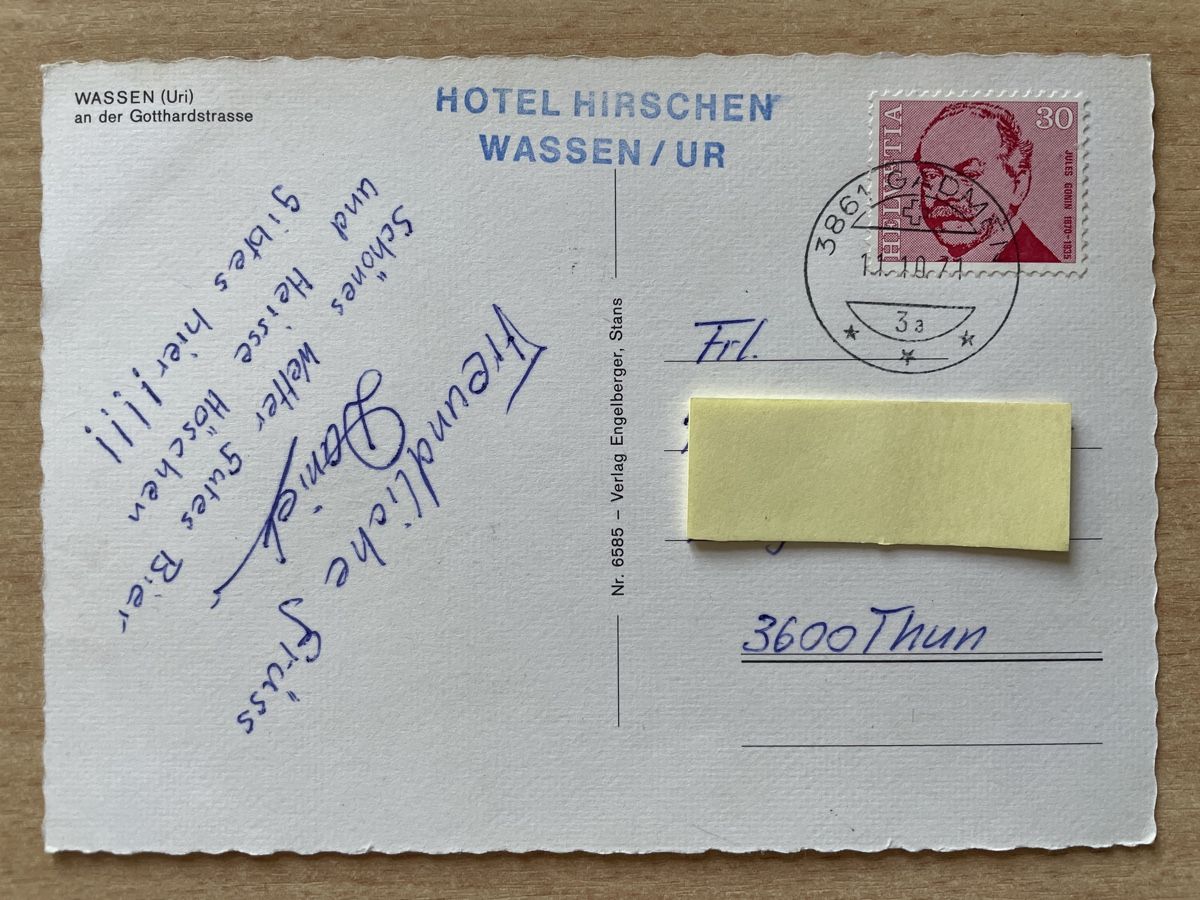 WASSEN (Uri)
an der Gotthardstrasse
HOTEL HIRSCHEN
WASSEN / UR
HELVETIA
30
JULES GONIN 1870-1935
3861 GADMEN
11.10.71
3a
Freundliche grüss
Daniel
Schönes Wetter gutes Bier
und Heisse Höschen
gibtes hier!!!!!
Nr. 6585 – Verlag Engelberger, Stans
Frl.
3600 Thun